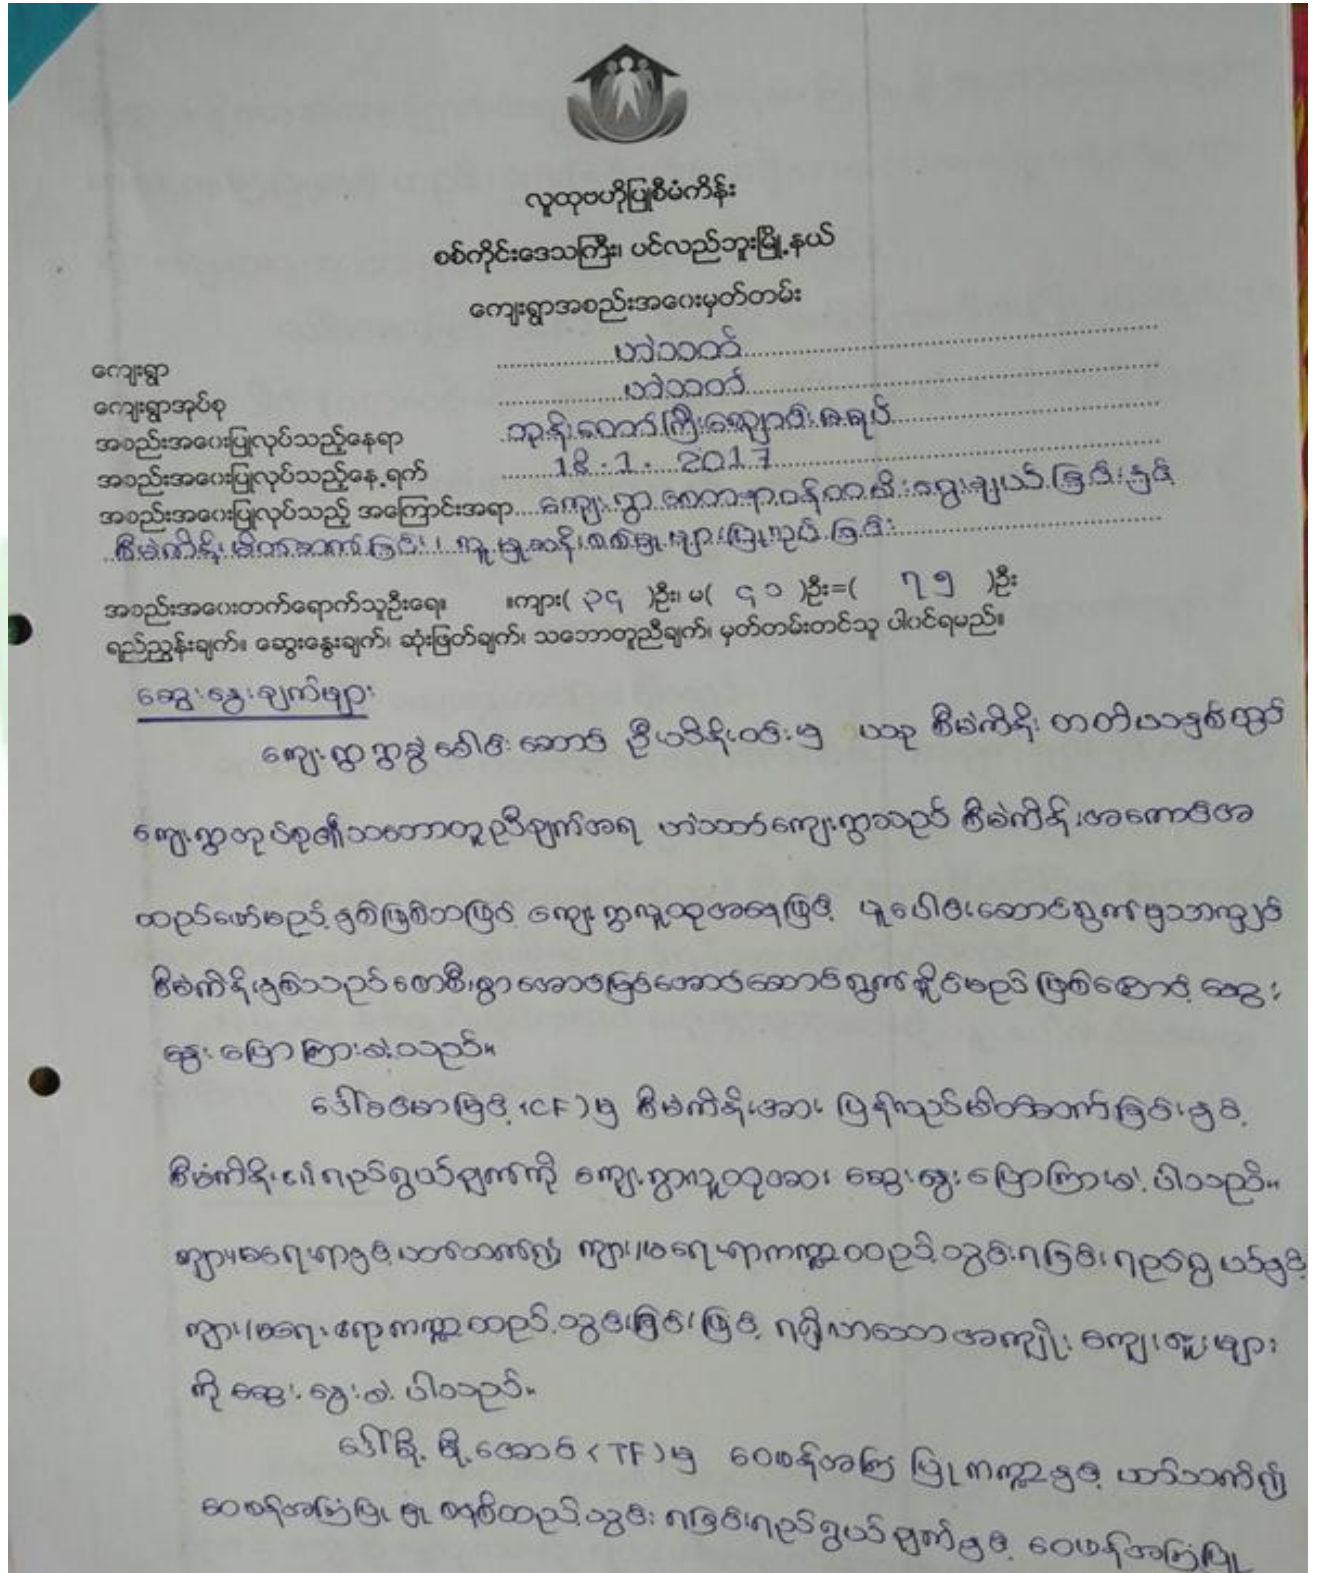 လူထုဗဟိုပြုစီမံကိန်း
စစ်ကိုင်းဒေသကြီး၊ ပင်လည်ဘူးမြို့နယ်
ကျေးရွာအစည်းအဝေးမှတ်တမ်း
ကျေးရွာ ဟဲသတ်
ကျေးရွာအုပ်စု ဟဲသတ်
အစည်းအဝေးပြုလုပ်သည့်နေရာ ဘုန်းတော်ကြီးကျောင်းဇရပ်
အစည်းအဝေးပြုလုပ်သည့်နေ့ရက် 18.1.2017
အစည်းအဝေးပြုလုပ်သည့် အကြောင်းအရာ ကျေးရွာစေတနာ့ဝန်ထမ်းရွေးချယ်ခြင်းနှင့်
စီမံကိန်းမိတ်ဆက်ခြင်း၊ လူမှုဆန်းစစ်မှုများပြုလုပ်ခြင်း
အစည်းအဝေးတက်ရောက်သူဦးရေ။ ။ကျား( ၃၄ )ဦး၊ မ( ၄၁ )ဦး=( ၇၅ )ဦး
ရည်ညွှန်းချက်။ ဆွေးနွေးချက်၊ ဆုံးဖြတ်ချက်၊ သဘောတူညီချက်၊ မှတ်တမ်းတင်သူ ပါဝင်ရမည်။
ဆွေးနွေးချက်များ
ကျေးရွာရွာခွဲခေါင်းဆောင် ဦးဟိန်းဝင်းမှ ယခု စီမံကိန်း တတိယနှစ်တွင်
ကျေးရွာအုပ်စု၏သဘောတူညီချက်အရ ဟဲသတ်ကျေးရွာသည် စီမံကိန်းအကောင်အ
ထည်ဖော်မည့်နှစ်ဖြစ်သဖြင့် ကျေးရွာလူထုအနေဖြင့် ပူးပေါင်းဆောင်ရွက်မှုသာကျွင်
စီမံကိန်းနှစ်သည် စောစီးစွာအောင်မြင်အောင်ဆောင်ရွက်နိုင်မည် ဖြစ်ကြောင့် ဆွေး
နွေးပြောကြားခဲ့သည်။
ဒေါ်ခင်မာမြင့် (CF) မှ စီမံကိန်းအား ပြန်လည်မိတ်ဆက်ခြင်းနှင့်
စီမံကိန်း၏ရည်ရွယ်ချက်ကို ကျေးရွာလူထုအား ဆွေးနွေးပြောကြားခဲ့ပါသည်။
ကျား/မရေးရာနှင့်ပတ်သက်၍ ကျား/မရေးရာကဏ္ဍထည့်သွင်းရခြင်းရည်ရွယ်နှင့်
ကျား/မရေးရာကဏ္ဍထည့်သွင်းခြင်းဖြင့် ရရှိလာသောအကျိုးကျေးဇူးများ
ကို ဆွေးနွေးခဲ့ပါသည်။
ဒေါ်မို့မို့အောင် (TF) မှ ဝေဖန်အကြံပြုကဏ္ဍနှင့်ပတ်သက်၍
ဝေဖန်အကြံပြုမှု စနစ်ထည့်သွင်းရခြင်းရည်ရွယ်ချက်နှင့် ဝေဖန်အကြံပြု